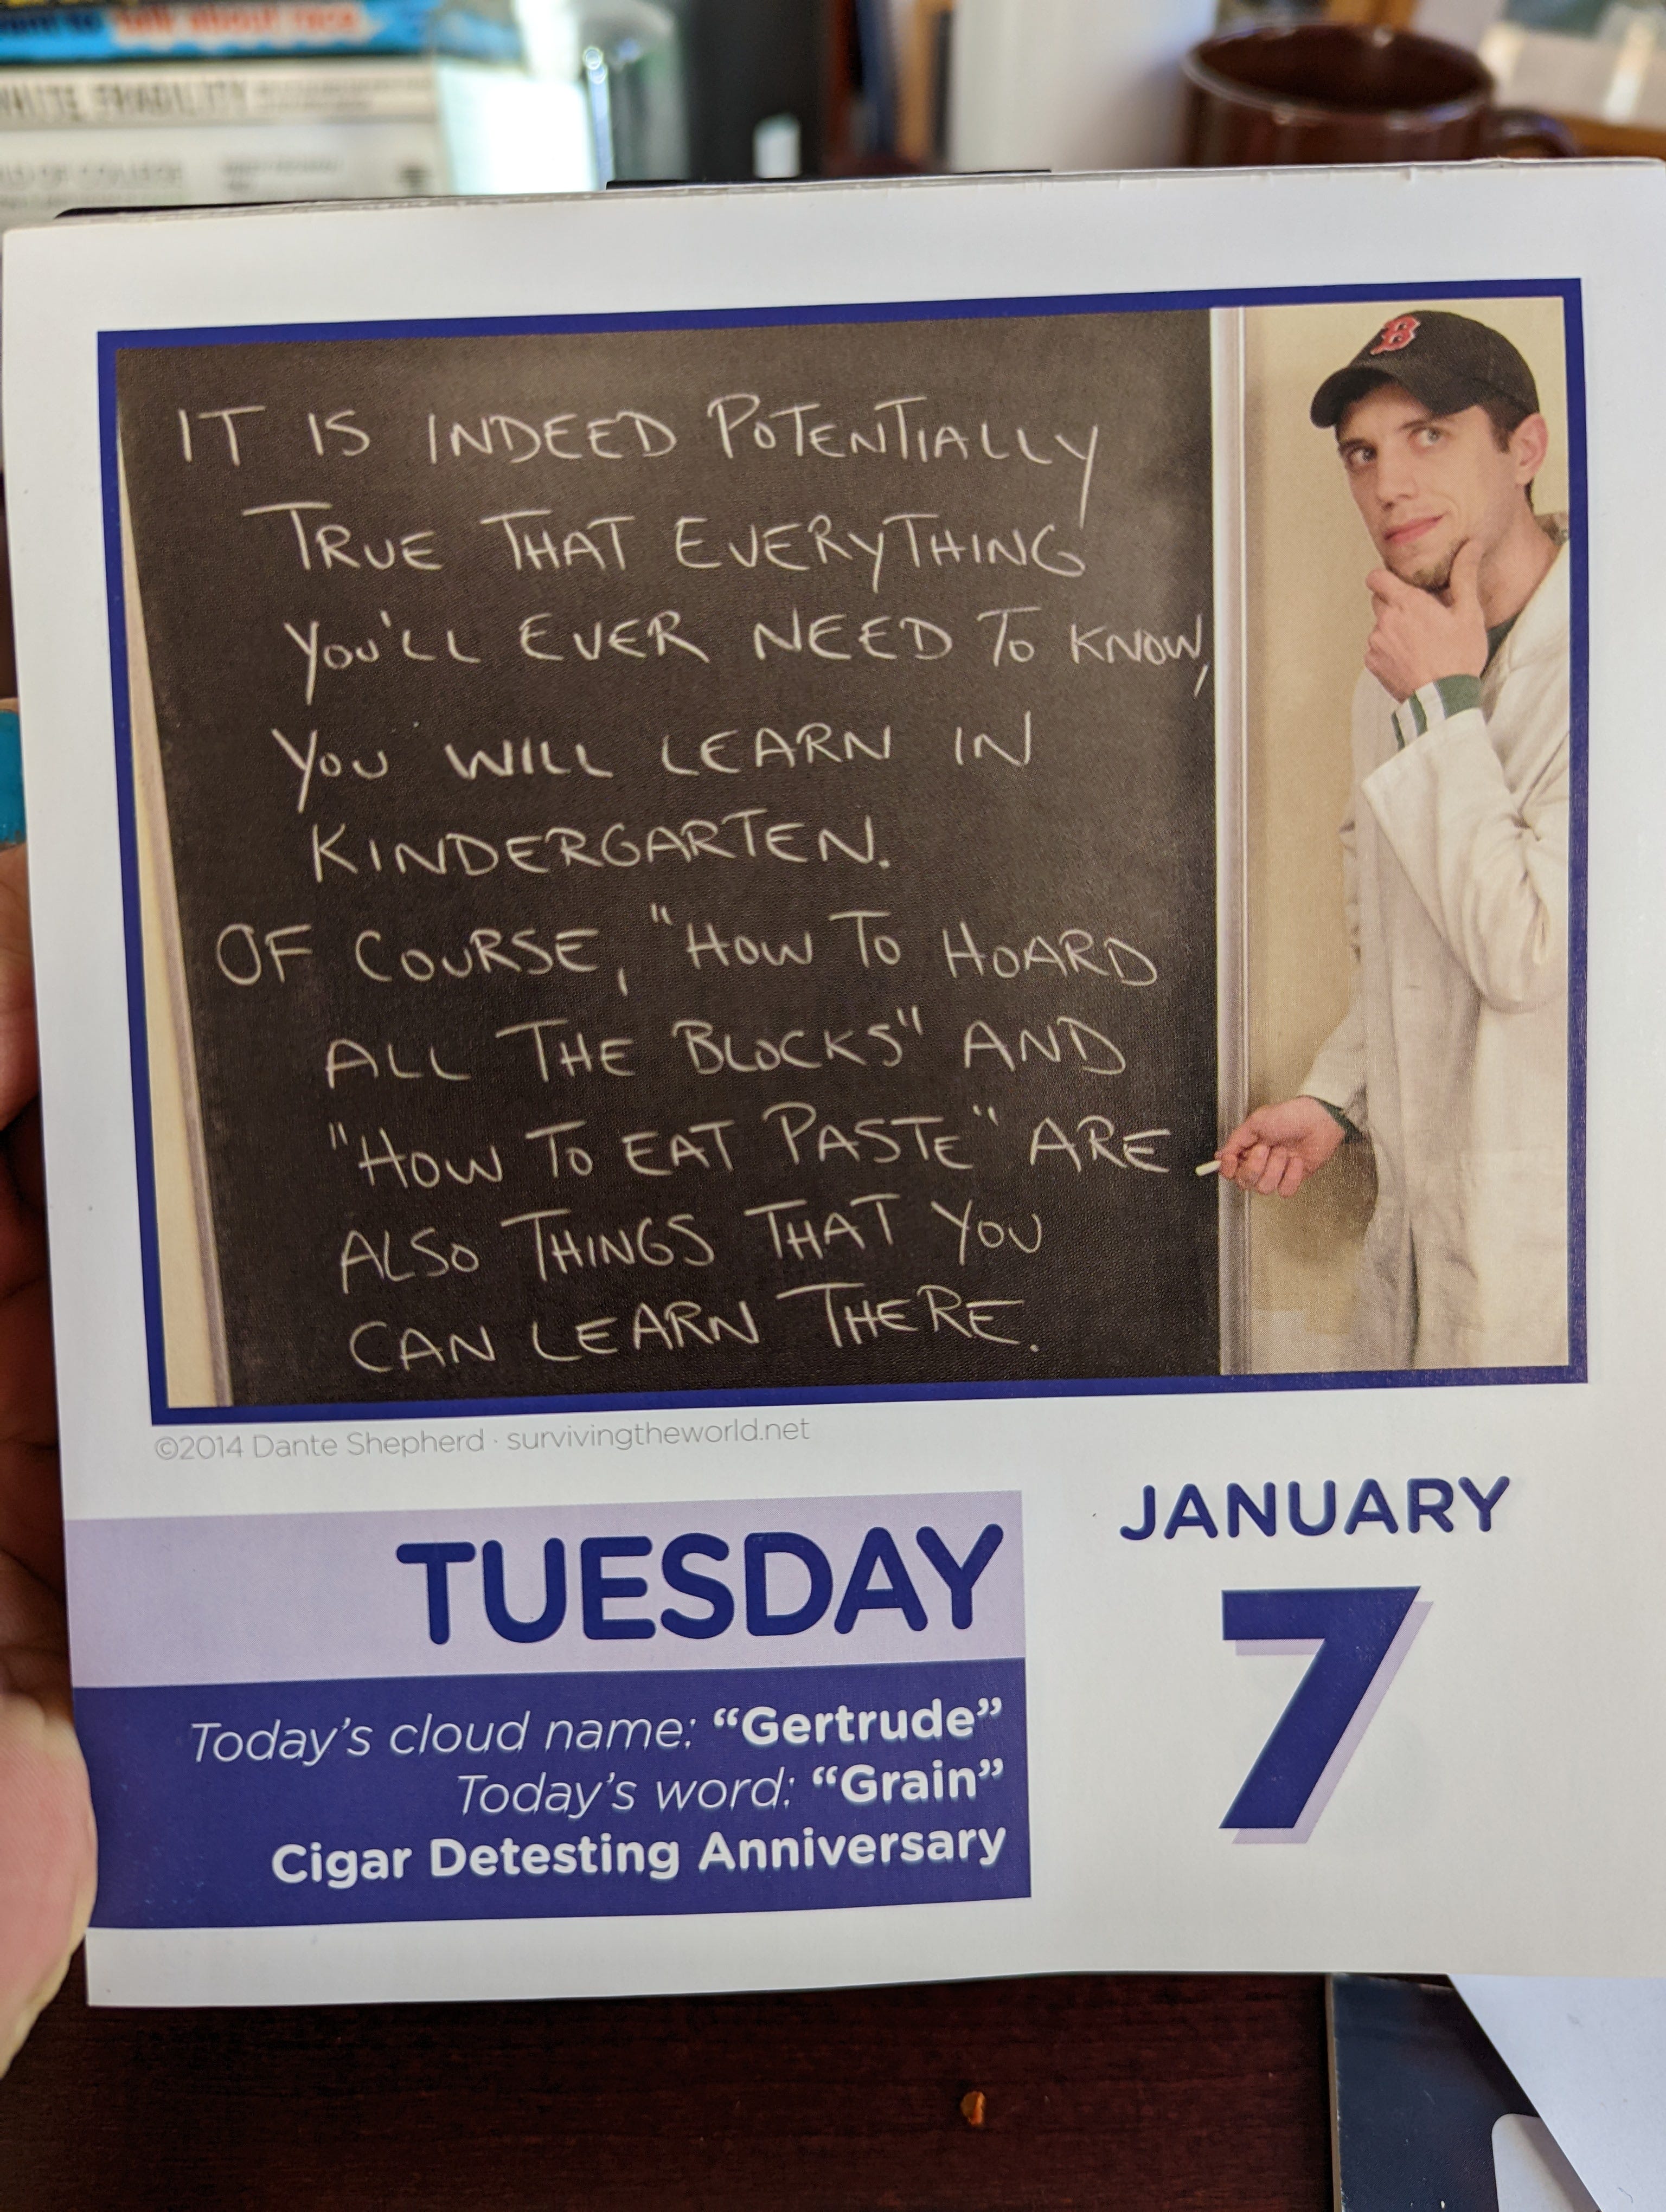 talk about race.
WHITE FRAGILITY
OF COLLEGE
B
IT IS INDEED POTENTIALLY
TRUE THAT EVERYTHING
YOU'LL EVER NEED TO KNOW,
YOU WILL LEARN IN
KINDERGARTEN.
OF COURSE, "HOW TO HOARD
ALL THE BLOCKS" AND
"HOW TO EAT PASTE" ARE
ALSO THINGS THAT YOU
CAN LEARN THERE.
©2014 Dante Shepherd · survivingtheworld.net
TUESDAY
JANUARY
7
Today's cloud name: “Gertrude”
Today's word: “Grain”
Cigar Detesting Anniversary